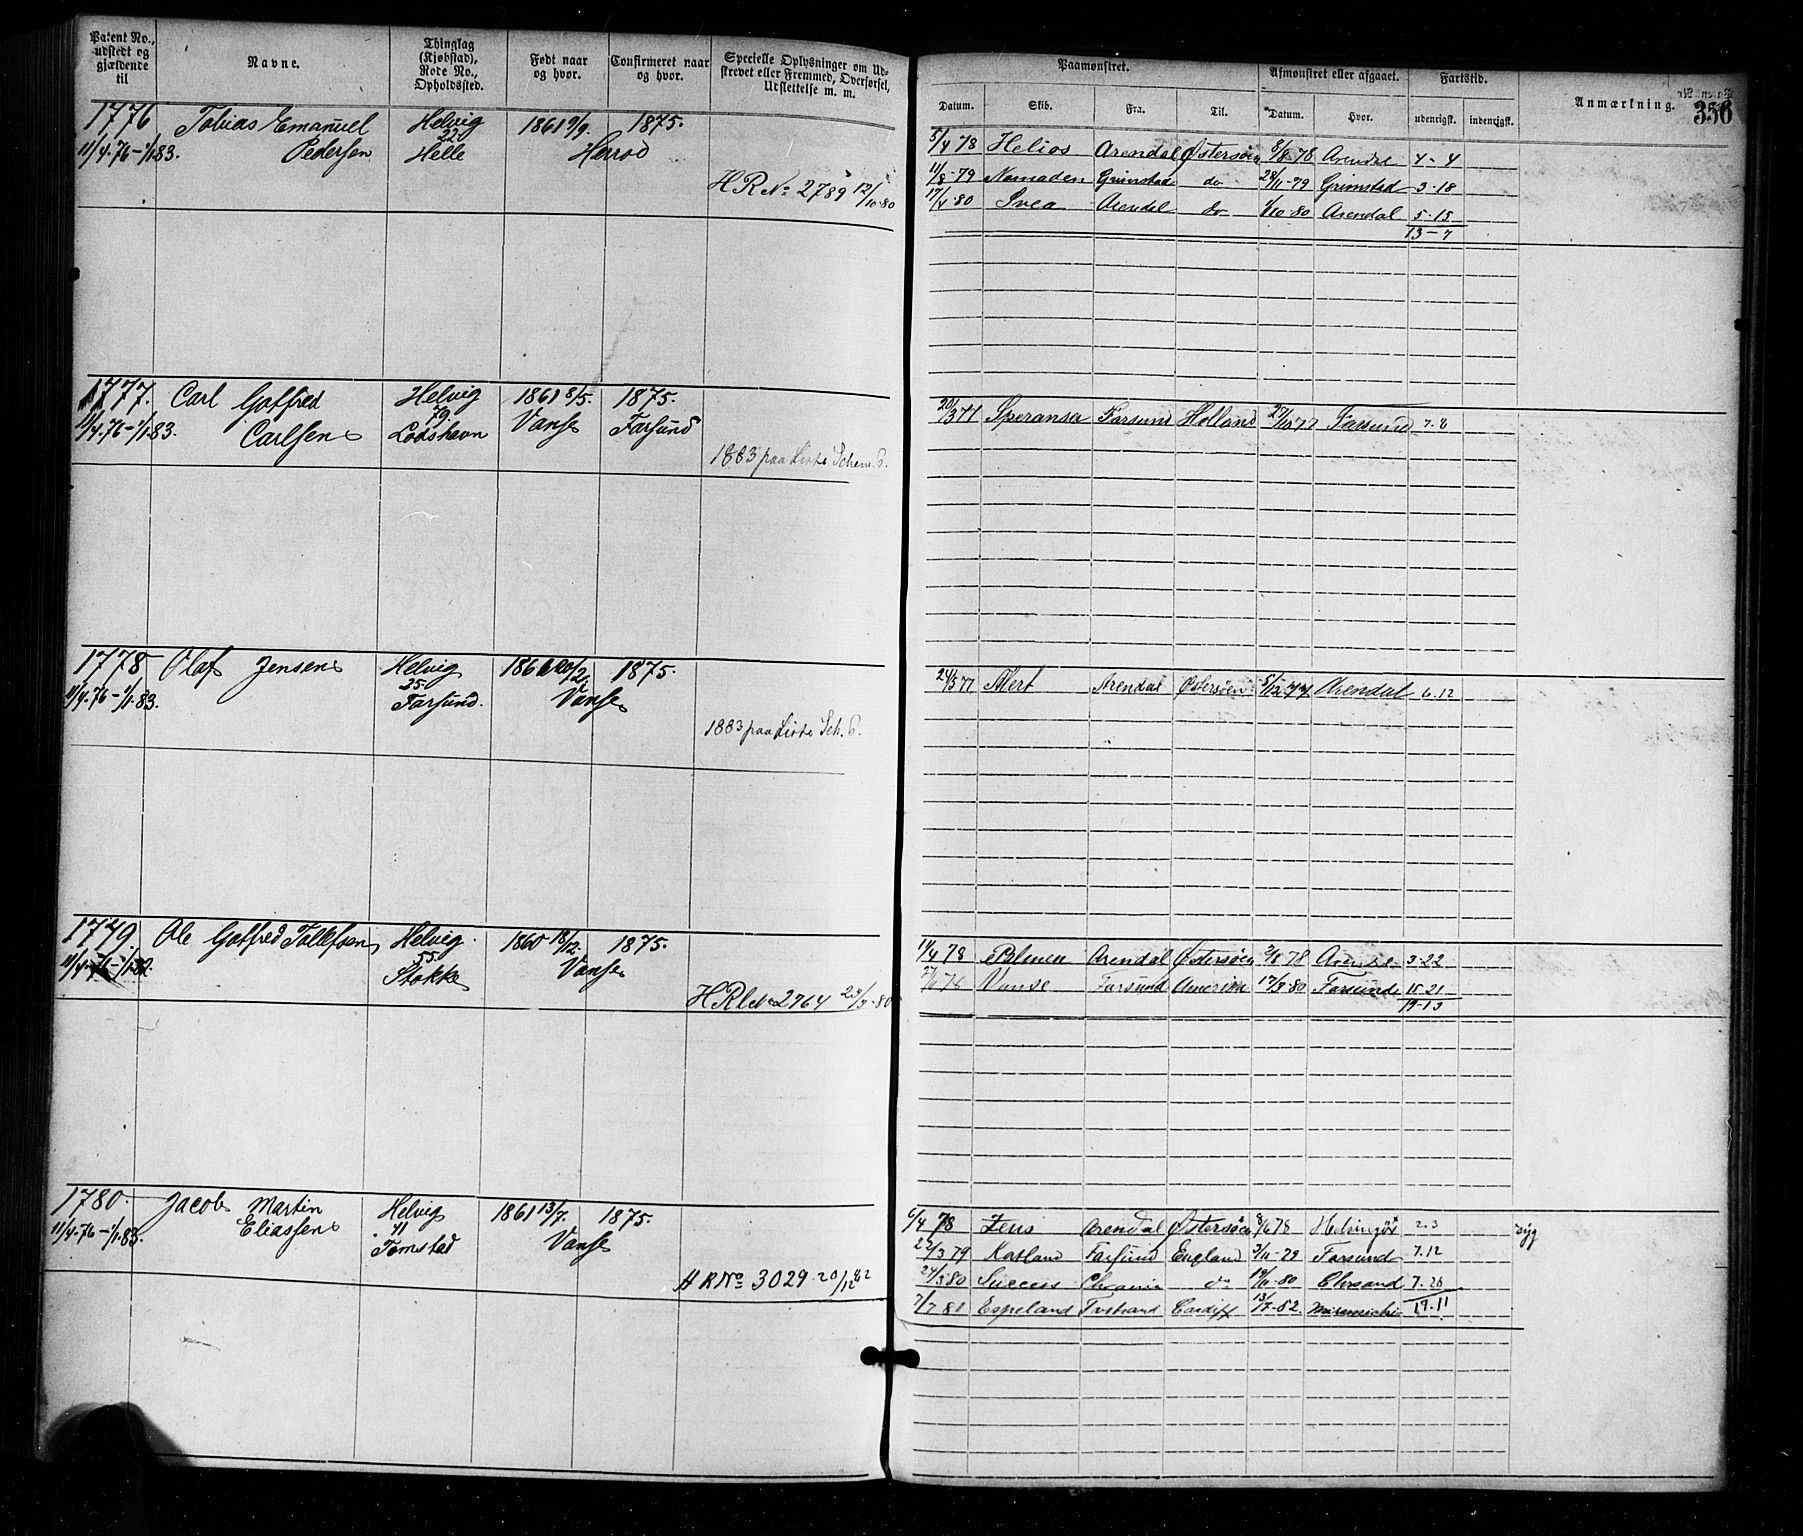 Patent No., udstedt og gjældende til
Navne.
Thinglag (Kjøbstad), Rode No., Opholdssted.
Født naar og hvor.
Confirmeret naar og hvor.
Specielle Oplysninger om Udstrevet eller Fremmed, Overførsel, Udslettelse m. m.
Paamønstret.
Afmønstret eller afgaaet.
Fartstid.
Anmærkning.
356
Datum. Skib. Fra. Til. Datum. Hvor. udenrigst. indenrigst.
1776 Tobias Emanuel Helvig 1861 9/9. 1875.
22
11/4.76-1/1.83. Pedersen Helle Herrod
H R No 2789 12/10.80
5/4 78 Helios Arendal Østersøen 8/8-78 Arendal 4-4
11/8-79 Nomaden Grimstad do 28/11-79 Grimstad 3-18
17/4.80 Svea Arendal do 1/10-80 Arendal 5-15
13-7
1777. Carl Gotfred Helvig 1861 8/5. 1875.
79
11/4.76-1/1.83. Carlsen Lodshavn Vanse Farsund
1883 paa Liste Schem. 6.
20/3 77 Speransa Farsund Holland 27/10 77 Farsund 7.8
1778 Olaf Jensen Helvig 1861 20/2. 1875.
35.
11/4.76-1/1.83. Farsund. Vanse
1883 paa Liste Sch. 6.
24/5 77 Alert Arendal Østersøen 5/12-77 Arendal 6.12
1779. Ole Gotfred Tollefsen Helvig. 1860 18/12. 1875.
55.
11/4.76-1/1.82. Stokke Vanse
H Rl No 2764 23/7.80
14/4 78 Palmen Arendal Østersøen 3/8 78 Arendal 3-22
Vanse Farsund Amerika 17/3.80 Farsund 15-21
19-13
1780. Jacob Martin Helvig 1861 13/7. 1875.
41
11/4.76-1/1.83. Eliassen Tomstad Vanse
H R No 3029 20/12 82
6/4 78 Zeus Arendal Østersøen 8/6 78 Helsingør 2.3 syg
22/3 79 Katland Farsund England 3/11-79 Farsund 7.12
24/3 80 Success Chrania do 19/11-80 Chrsand 7.26
7/7 81 Espeland Tvstrand Cardiff 13/7-82. Miramichi 17.11